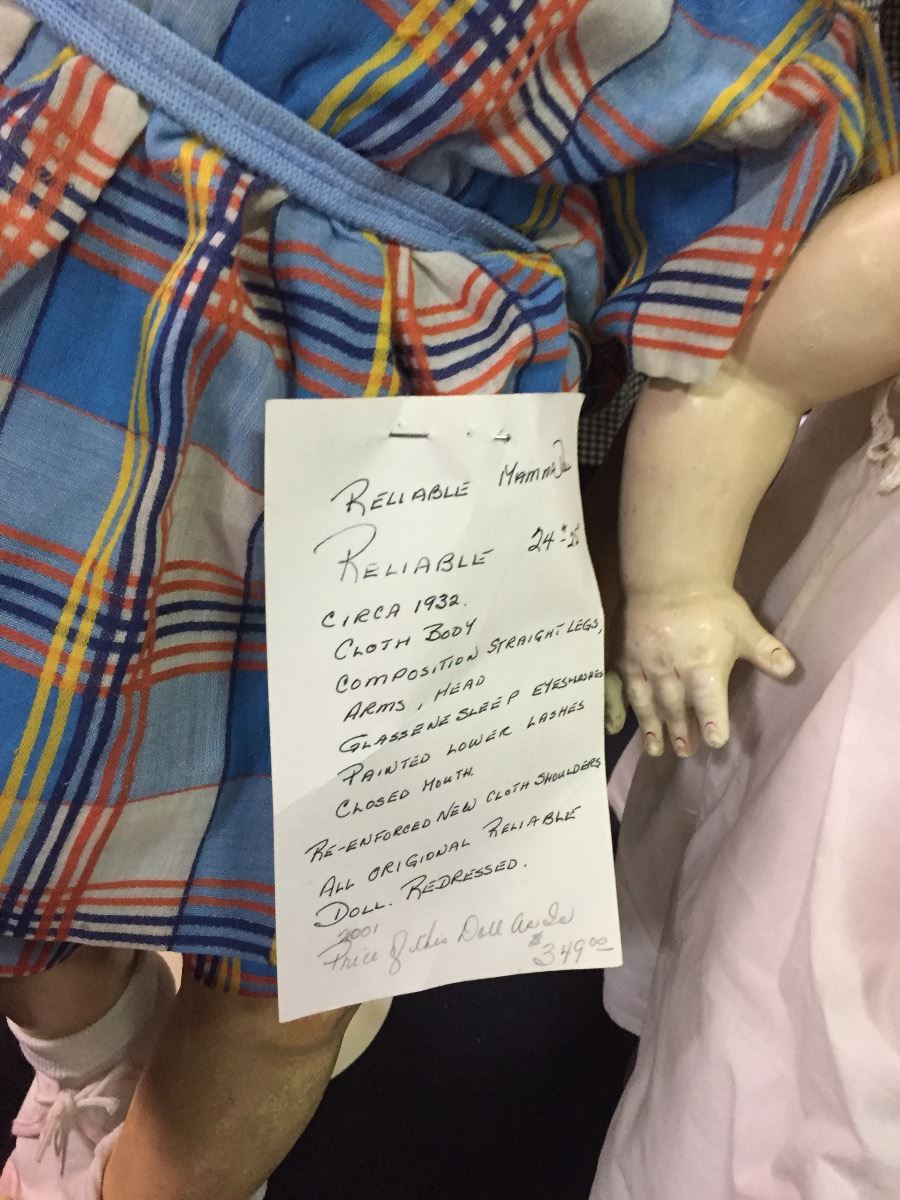 RELIABLE MAMMA
RELIABLE 24"-25
CIRCA 1932.
CLOTH BODY
COMPOSITION STRAIGHT LEGS,
ARMS, HEAD
GLASSENE SLEEP EYES LASHES
PAINTED LOWER LASHES
CLOSED MOUTH.
RE-ENFORCED NEW CLOTH SHOULDERS
ALL ORIGIONAL RELIABLE
DOLL. REDRESSED.
2001
Price of this Doll As Is
$349.00